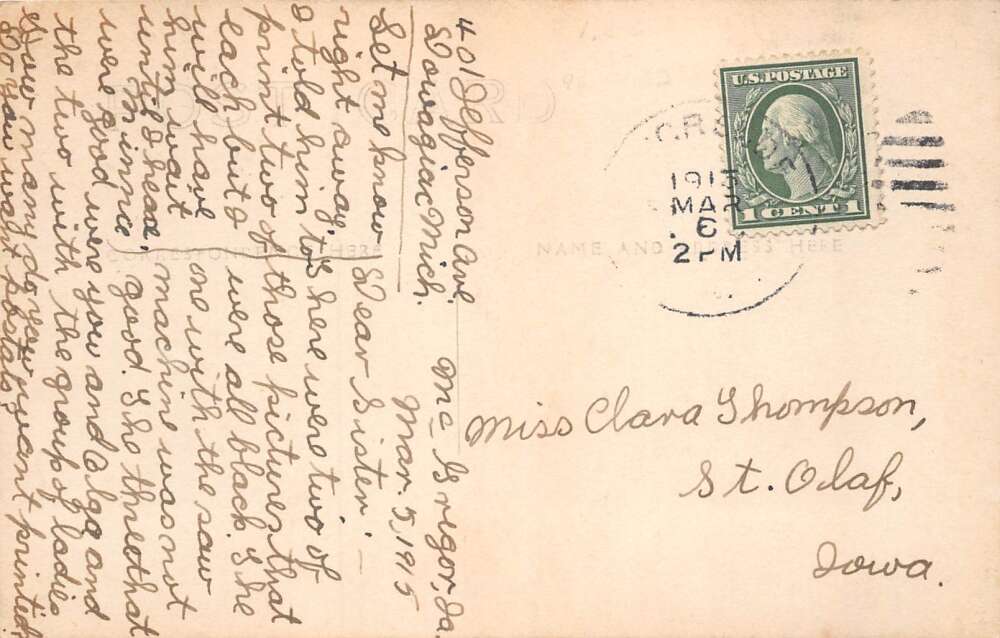 POST CARD
CORRESPONDENCE HERE
NAME AND ADDRESS HERE
401 Jefferson Ave.
Dowagiac Mich.
Mc-Gregor, Ia.
Mar. 5, 1915
Dear Sister:-
There were two of
those pictures that
were all black. The
one with the saw
machine was not
good. The three that
were good were you and Olga and
the two with the group of ladies
How many do you want printed.
Do you want postals?
Let me know
right away.
I told him to
print two of
each but I
will have
him wait
until I hear.
Minnie.
U.S. POSTAGE
1 CENT 1
1915
MAR
6
2 PM
Miss Clara Thompson,
St. Olaf,
Iowa.